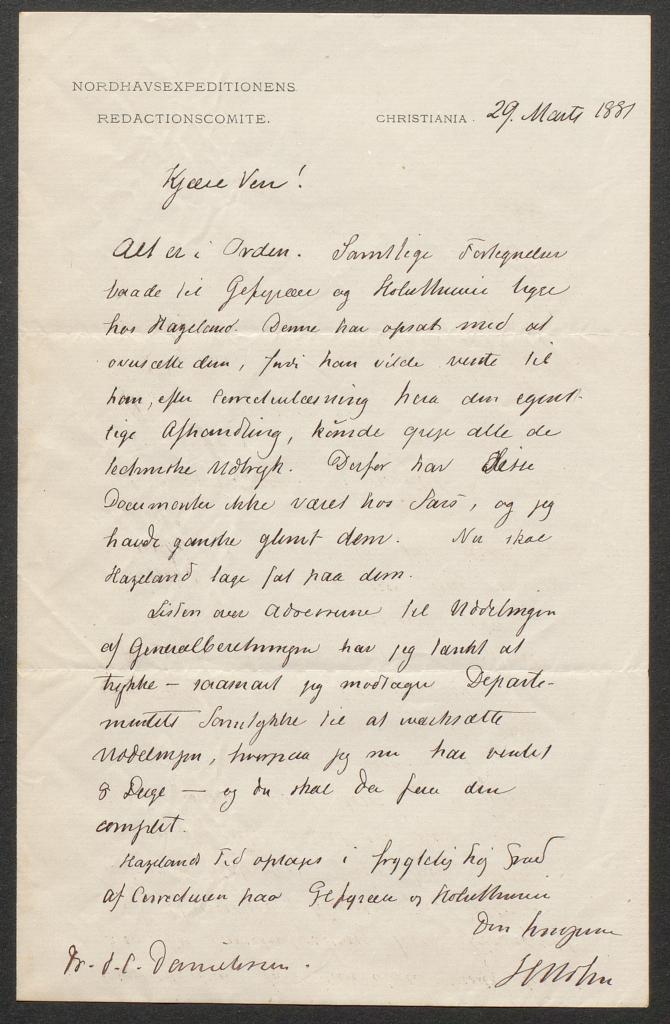 NORDHAVSEXPEDITIONENS
REDACTIONSCOMITE.
CHRISTIANIA. 29. Marts 1881
Kjære Ven!
Alt er i Orden. Samtlige Fortegnelser
baade til Gefyreer og Holothurier ligge
hos Hazeland. Denne har opsat med at
oversætte dem, fordi han vilde vente til
han, efter Correcturlæsning hera den egent-
lige Afhandling, kunde gripe alle de
techniske Udtryk. Derfor har disse
Documenter ikke været hos Sars, og jeg
havde ganske glemt dem. Nu skal
Hazeland tage fat paa dem.
Listen over Adresserne til Uddelingen
af Generalberetningen har jeg tænkt at
trykke – saasnart jeg modtager Departe-
mentets Samtykke til at iværksætte
Uddelingen, hvorpaa jeg nu har ventet
8 Dage – og du skal da faa den
complet.
Hazelands Tid optages i frygtelig høj Grad
af Correcturen paa Gefyreer og Holothurier
Din hengivne
Dr. D. C. Danielssen. H Mohn